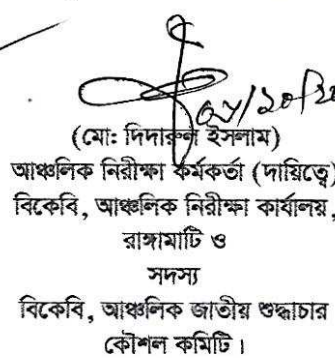 (মো: দিদারুল ইসলাম)
আঞ্চলিক নিরীক্ষা কর্মকর্তা (দায়িত্বে)
বিকেবি, আঞ্চলিক নিরীক্ষা কার্যালয়,
রাঙ্গামাটি ও
সদস্য
বিকেবি, আঞ্চলিক জাতীয় শুদ্ধাচার
কৌশল কমিটি।